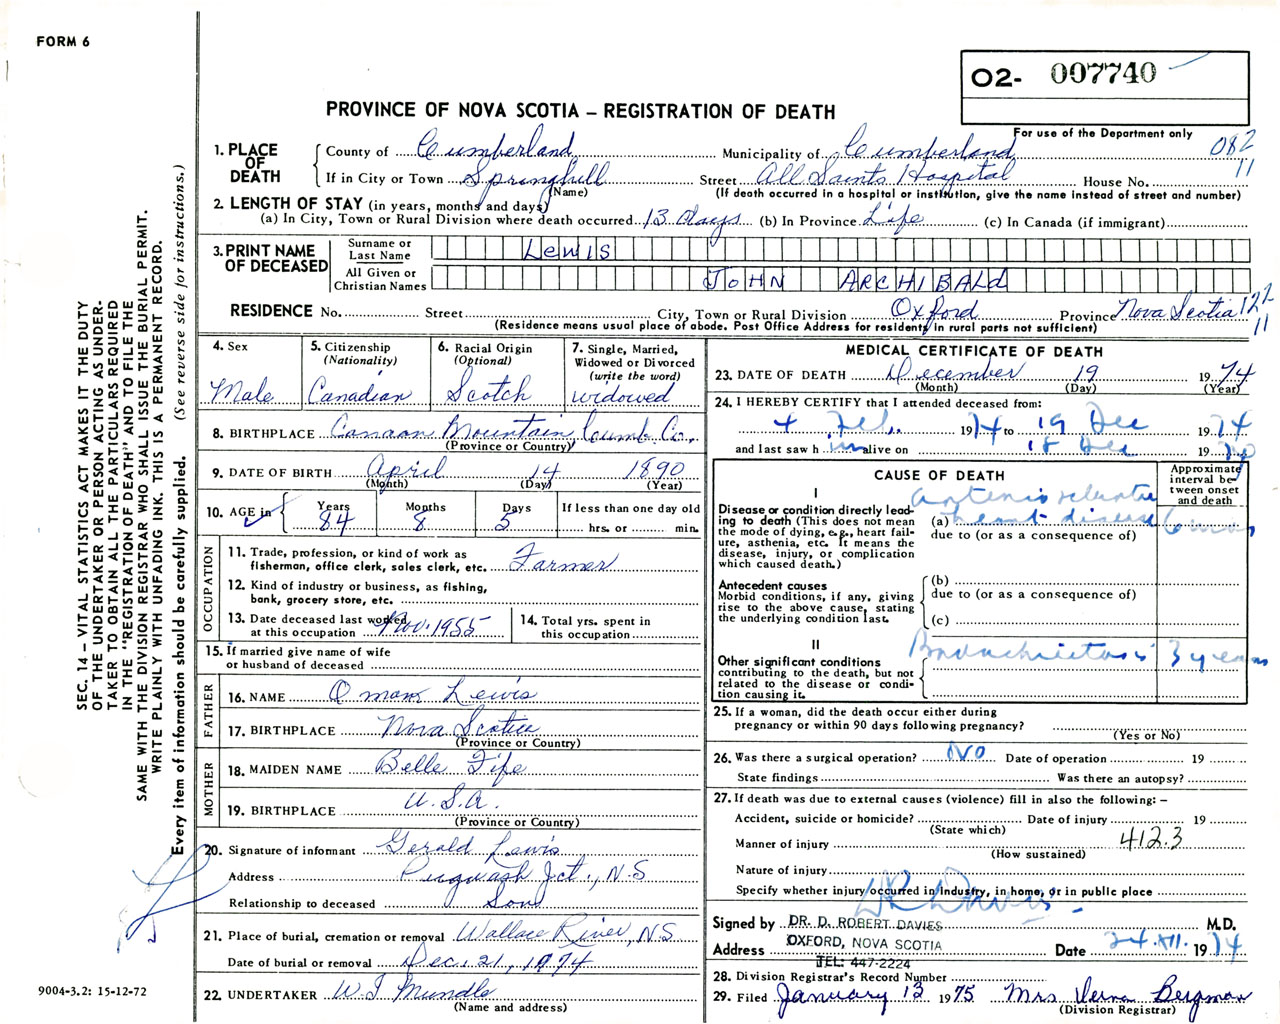 FORM 6
O2- 007740
PROVINCE OF NOVA SCOTIA – REGISTRATION OF DEATH
For use of the Department only
082
11
1. PLACE OF DEATH
County of Cumberland Municipality of Cumberland
If in City or Town Springhill Street All Saints Hospital House No.
(Name) (If death occurred in a hospital or institution, give the name instead of street and number)
2. LENGTH OF STAY (in years, months and days)
(a) In City, Town or Rural Division where death occurred 13 days (b) In Province Life (c) In Canada (if immigrant)
3. PRINT NAME OF DECEASED
Surname or Last Name LEWIS
All Given or Christian Names JOHN ARCHIBALD
RESIDENCE No. Street City, Town or Rural Division Oxford Province Nova Scotia 122
11
(Residence means usual place of abode. Post Office Address for residents in rural parts not sufficient)
4. Sex
Male
5. Citizenship
(Nationality)
Canadian
6. Racial Origin
(Optional)
Scotch
7. Single, Married,
Widowed or Divorced
(write the word)
widowed
8. BIRTHPLACE Canaan Mountain Cumb. Co.,
(Province or Country)
9. DATE OF BIRTH April 14 1890
(Month) (Day) (Year)
10. AGE in Years Months Days If less than one day old
84 8 5 hrs. or min.
OCCUPATION
11. Trade, profession, or kind of work as
fisherman, office clerk, sales clerk, etc. Farmer
12. Kind of industry or business, as fishing,
bank, grocery store, etc.
13. Date deceased last worked
at this occupation Nov. 1955
14. Total yrs. spent in
this occupation
15. If married give name of wife
or husband of deceased
FATHER
16. NAME Oman Lewis
17. BIRTHPLACE Nova Scotia
(Province or Country)
MOTHER
18. MAIDEN NAME Belle Fife
19. BIRTHPLACE U.S.A.
(Province or Country)
20. Signature of informant Gerald Lewis
Address Pugwash Jct., N.S
Relationship to deceased Son
21. Place of burial, cremation or removal Wallace River, N.S
Date of burial or removal Dec. 21, 1974
22. UNDERTAKER W J Mundle
(Name and address)
MEDICAL CERTIFICATE OF DEATH
23. DATE OF DEATH December 19 1974
(Month) (Day) (Year)
24. I HEREBY CERTIFY that I attended deceased from:
4 Feb. 1974 to 19 Dec 1974
and last saw h im alive on 18 Dec 19
CAUSE OF DEATH
Approximate
interval be-
tween onset
and death
I
Disease or condition directly lead-
ing to death (This does not mean
the mode of dying, e.g., heart fail-
ure, asthenia, etc. It means the
disease, injury, or complication
which caused death.)
(a) arteriosclerotic
heart disease 6
due to (or as a consequence of)
Antecedent causes
Morbid conditions, if any, giving
rise to the above cause, stating
the underlying condition last.
(b)
due to (or as a consequence of)
(c)
II
Other significant conditions
contributing to the death, but not
related to the disease or condi-
tion causing it.
Bronchiectasis 3 years
25. If a woman, did the death occur either during
pregnancy or within 90 days following pregnancy?
(Yes or No)
26. Was there a surgical operation? No Date of operation 19
State findings Was there an autopsy?
27. If death was due to external causes (violence) fill in also the following: –
Accident, suicide or homicide? Date of injury 19
(State which)
412.3
Manner of injury
(How sustained)
Nature of injury
Specify whether injury occurred in industry, in home, or in public place
DR Davies
Signed by DR. D. ROBERT DAVIES M.D.
Address OXFORD, NOVA SCOTIA Date 24.XII. 1974
TEL: 447-2224
28. Division Registrar's Record Number
29. Filed January 13 1975 Mrs Verna Bergman
(Division Registrar)
SEC. 14 – VITAL STATISTICS ACT MAKES IT THE DUTY
OF THE UNDERTAKER OR PERSON ACTING AS UNDER-
TAKER TO OBTAIN ALL THE PARTICULARS REQUIRED
IN THE "REGISTRATION OF DEATH" AND TO FILE THE
SAME WITH THE DIVISION REGISTRAR WHO SHALL ISSUE THE BURIAL PERMIT.
WRITE PLAINLY WITH UNFADING INK. THIS IS A PERMANENT RECORD.
Every item of information should be carefully supplied. (See reverse side for instructions.)
9004-3.2: 15-12-72